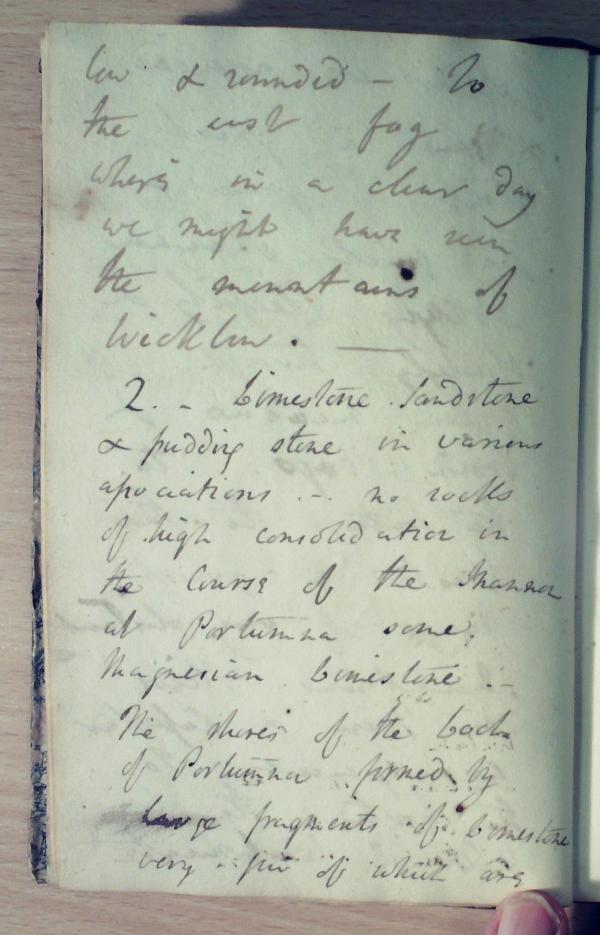 low & rounded - To
the east fog
where in a clear day
we might have seen
the mountains of
Wicklow. —
2. - Limestone Sandstone
& pudding stone in various
associations .-. no rocks
of high consolidation in
the Course of the Shannon
at Portumna some
Magnesian limestone .-
The shores of the Loch
of Portumna formed by
large fragments of limestone
very few of which are